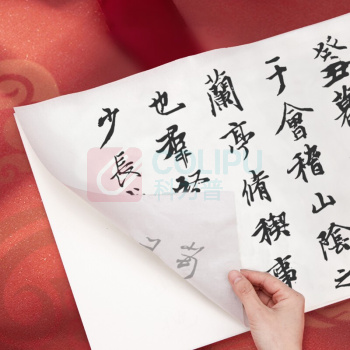 癸丑暮
于會稽山陰之
蘭亭脩禊事
也羣
少長
COLIPU
科力普